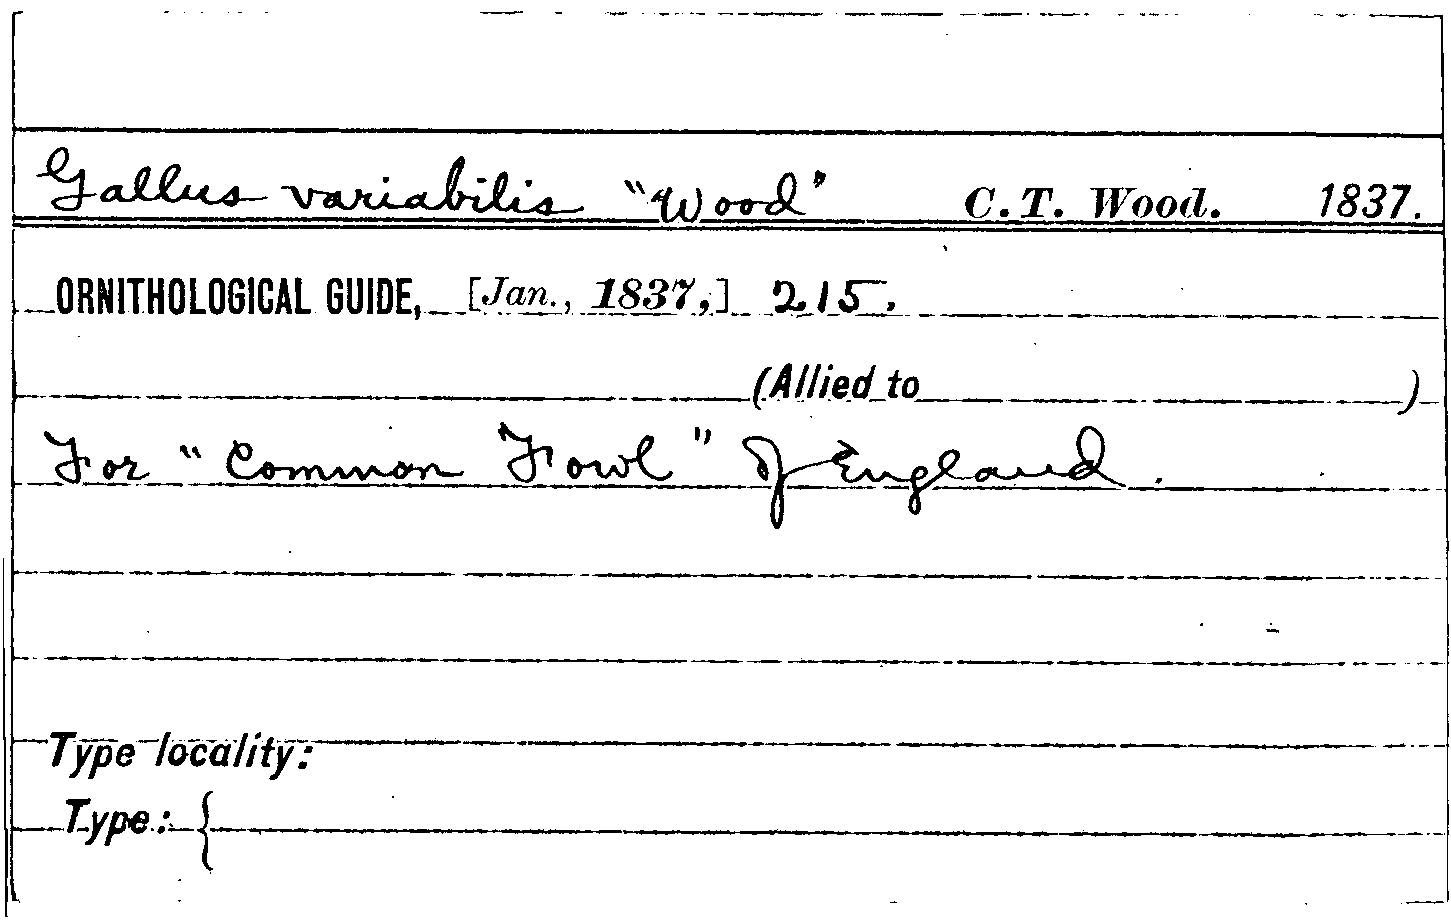 Gallus variabilis "Wood" C. T. Wood. 1837.
ORNITHOLOGICAL GUIDE, [Jan., 1837,] 215.
(Allied to )
For "Common Fowl" of England.
Type locality:
Type: {